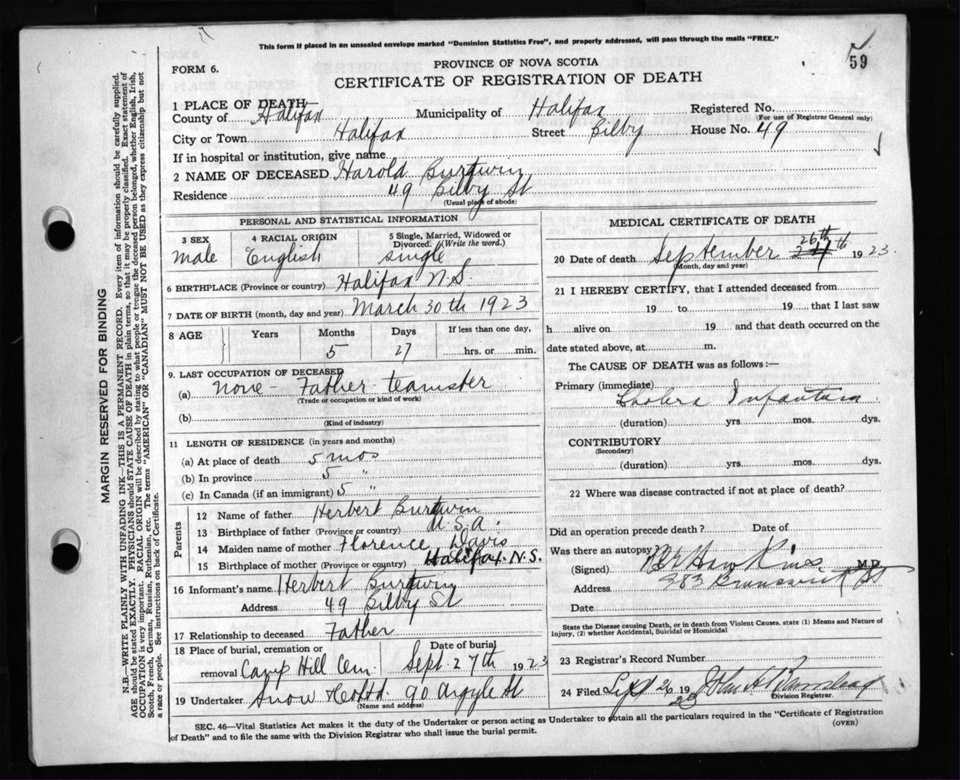 This form if placed in an unsealed envelope marked "Dominion Statistics Free", and properly addressed, will pass through the mails "FREE."
59
FORM 6.
PROVINCE OF NOVA SCOTIA
CERTIFICATE OF REGISTRATION OF DEATH
1 PLACE OF DEATH—
County of Halifax Municipality of Halifax Registered No.
(For use of Registrar General only)
City or Town Halifax Street Bilby House No. 49
If in hospital or institution, give name
2 NAME OF DECEASED Harold Burdwin
Residence 49 Bilby St
(Usual place of abode)
PERSONAL AND STATISTICAL INFORMATION
3 SEX 4 RACIAL ORIGIN 5 Single, Married, Widowed or Divorced. (Write the word.)
male English single
6 BIRTHPLACE (Province or country) Halifax N.S.
7 DATE OF BIRTH (month, day and year) March 30th 1923
8 AGE Years Months Days If less than one day,
5 27 hrs. or min.
9. LAST OCCUPATION OF DECEASED
(a) None - Father teamster
(Trade or occupation or kind of work)
(b)
(Kind of industry)
11 LENGTH OF RESIDENCE (in years and months)
(a) At place of death 5 mos
(b) In province 5 "
(c) In Canada (if an immigrant) 5 "
Parents
12 Name of father Herbert Burdwin
13 Birthplace of father (Province or country) U.S.A.
14 Maiden name of mother Florence Davis
15 Birthplace of mother (Province or country) Halifax N.S.
16 Informant's name Herbert Burdwin
Address 49 Bilby St
17 Relationship to deceased Father
18 Place of burial, cremation or removal Camp Hill Cem. Date of burial Sept. 27th 1923
19 Undertaker Snow & Co Ltd. 90 Argyle St
(Name and address)
MEDICAL CERTIFICATE OF DEATH
20 Date of death September 26th 1923
(Month, day and year)
21 I HEREBY CERTIFY, that I attended deceased from
19 to 19 that I last saw
h alive on 19 and that death occurred on the
date stated above, at m.
The CAUSE OF DEATH was as follows:—
Primary (immediate)
Cholera Infantum
(duration) yrs mos. dys.
CONTRIBUTORY
(Secondary)
(duration) yrs mos. dys.
22 Where was disease contracted if not at place of death?
Did an operation precede death? Date of
Was there an autopsy
(Signed) Hawkins M.D.
Address 283 Brunswick St
Date
State the Disease causing Death, or in death from Violent Causes, state (1) Means and Nature of Injury, (2) whether Accidental, Suicidal or Homicidal
23 Registrar's Record Number
24 Filed Sept 26 1923 John
Division Registrar.
SEC. 46—Vital Statistics Act makes it the duty of the Undertaker or person acting as Undertaker to obtain all the particulars required in the "Certificate of Registration of Death" and to file the same with the Division Registrar who shall issue the burial permit.
(OVER)
MARGIN RESERVED FOR BINDING
N.B.—WRITE PLAINLY WITH UNFADING INK—THIS IS A PERMANENT RECORD. Every item of information should be carefully supplied.
AGE should be stated EXACTLY. PHYSICIANS should STATE CAUSE OF DEATH in plain terms, so that it may be properly classified. Exact statement of
OCCUPATION is very important. RACIAL ORIGIN will be described by stating to what people or tongue the deceased person belonged, whether English, Irish,
Scotch, French, German, Russian, Ruthenian, etc. The terms "AMERICAN" OR "CANADIAN" MUST NOT BE USED as they express citizenship but not
a race or people. See instructions on back of Certificate.